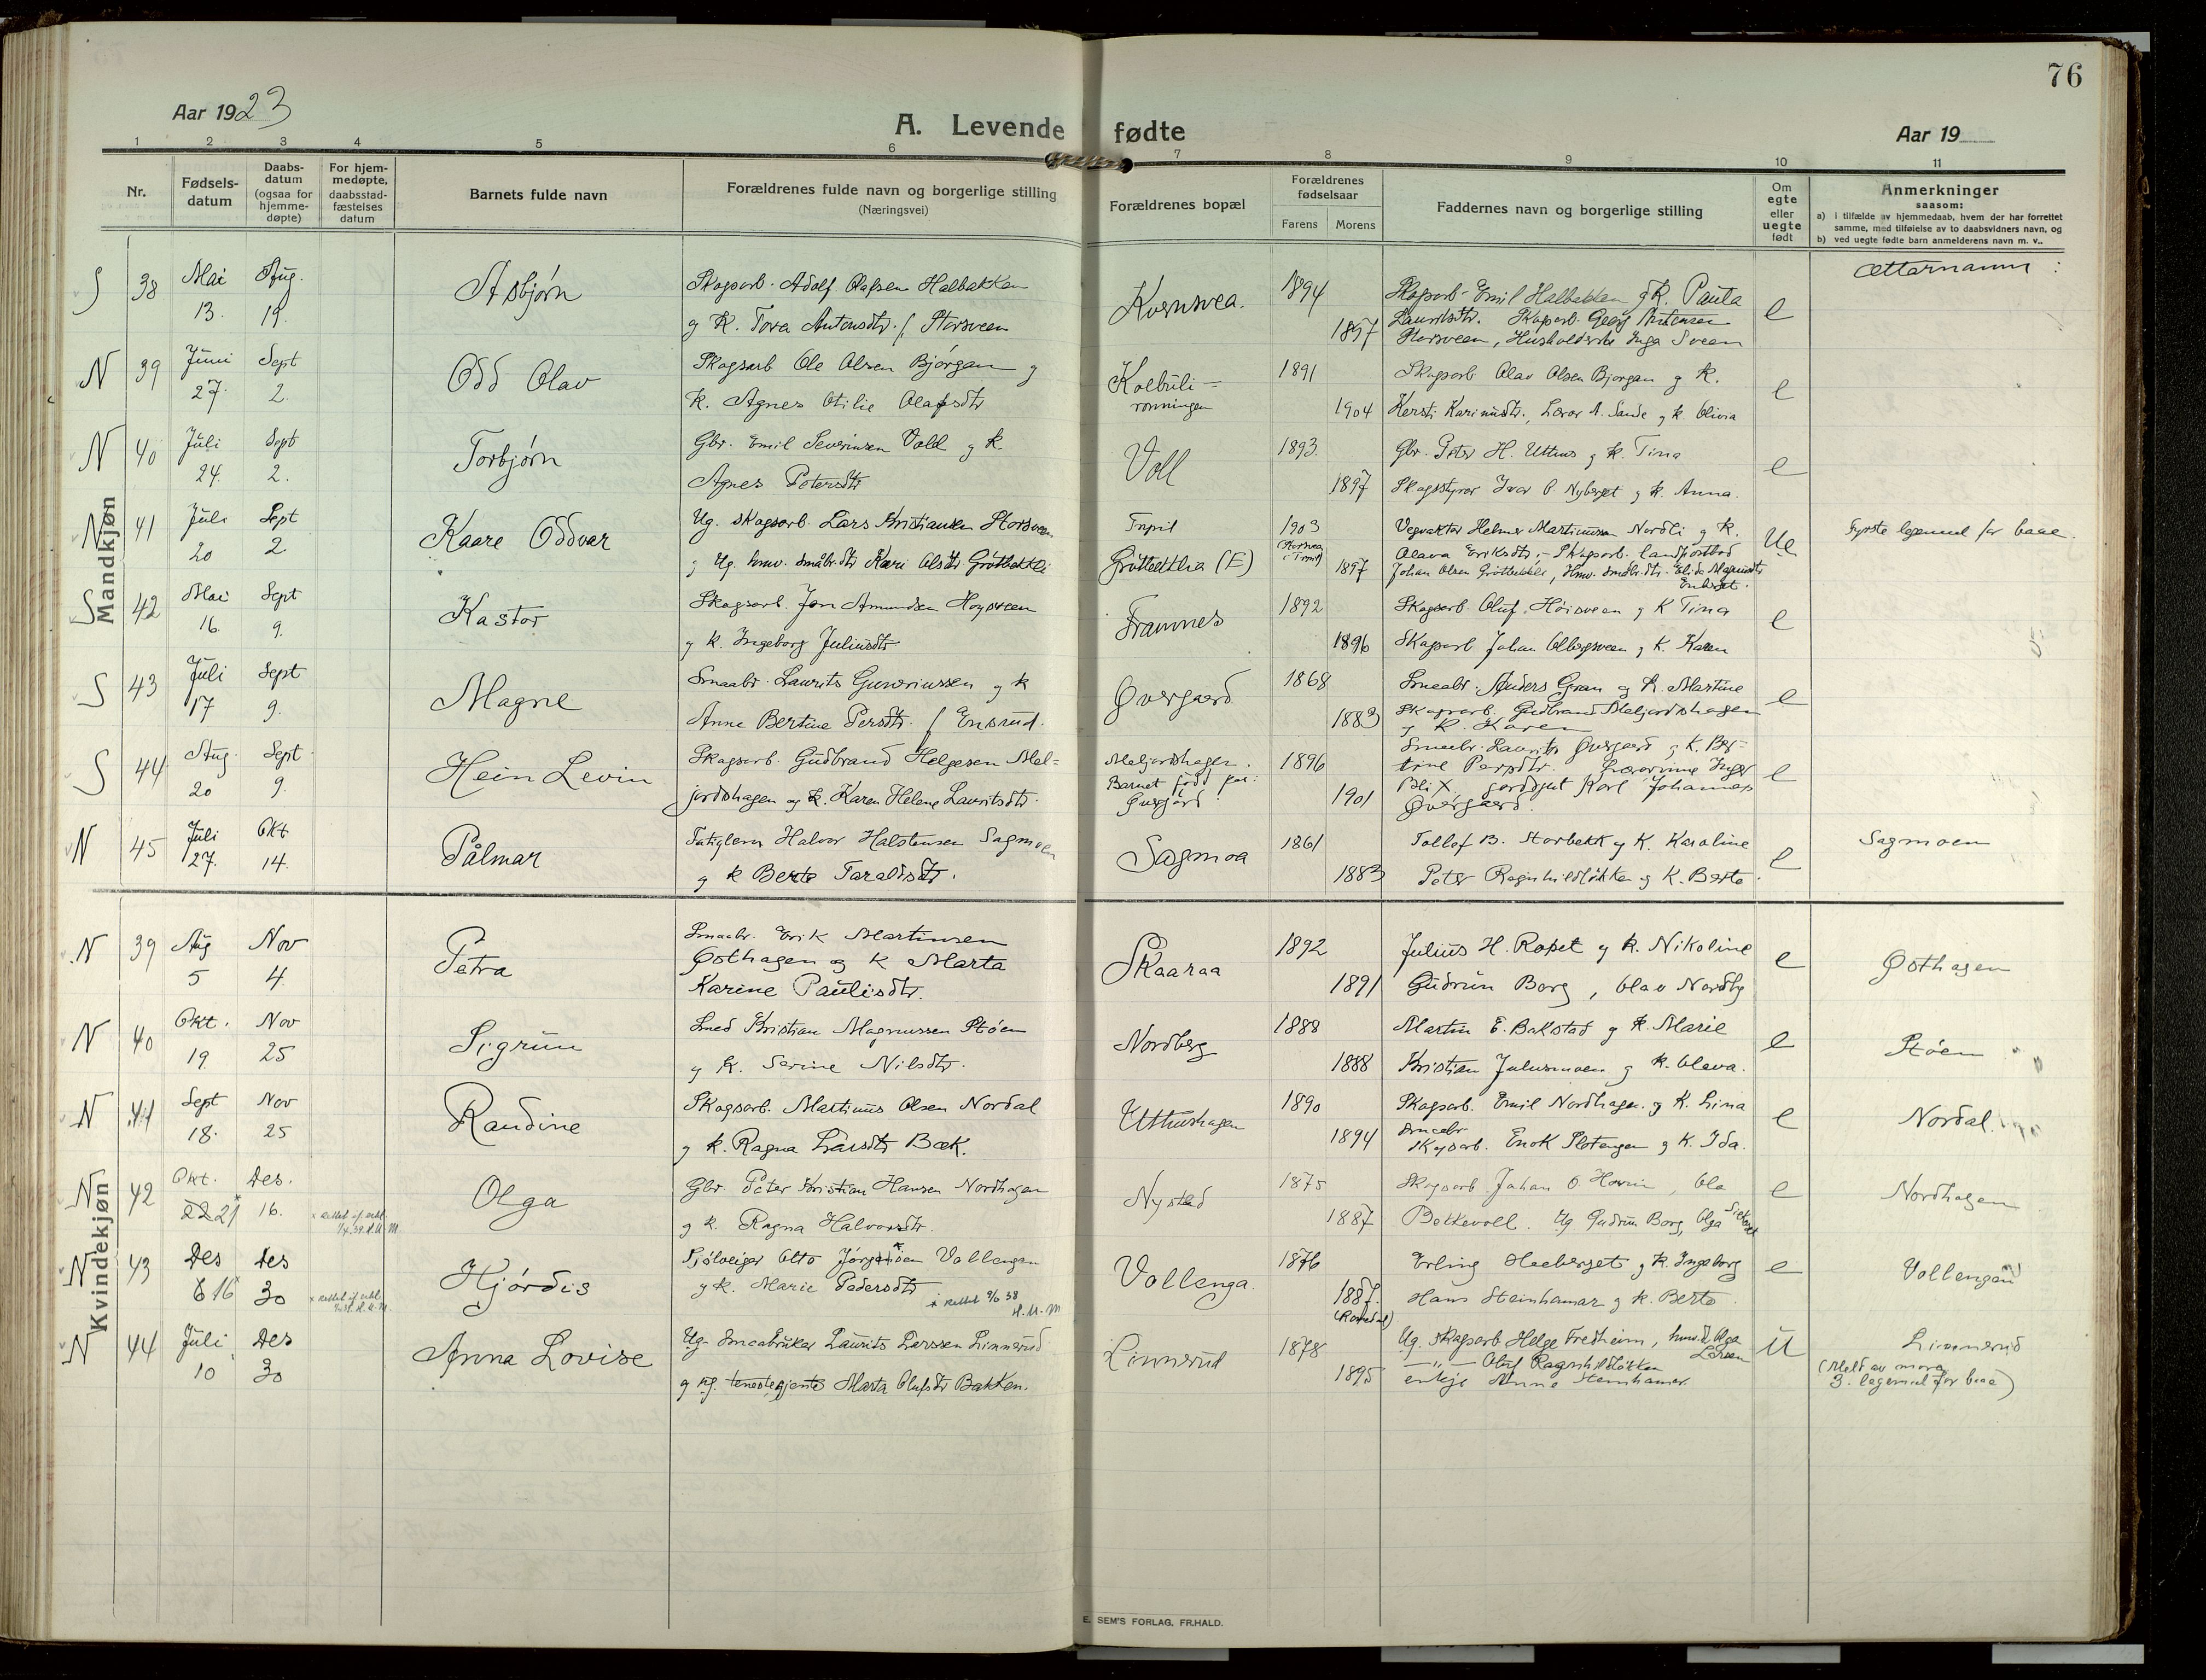 76
Aar 1923
A. Levende fødte
Aar 19
1 2 3 4 5 6 7 8 9 10 11
Nr.
Fødsels-
datum
Daabs-
datum
(ogsaa for
hjemme-
døpte)
For hjem-
medøpte,
daabsstad-
fæstelses
datum
Barnets fulde navn
Forældrenes fulde navn og borgerlige stilling
(Næringsvei)
Forældrenes bopæl
Forældrenes
fødselsaar
Farens Morens
Faddernes navn og borgerlige stilling
Om
egte
eller
uegte
født
Anmerkninger
saasom:
a) i tilfælde av hjemmedaab, hvem der har forrettet
samme, med tilføielse av to daabsvidners navn, og
b) ved uegte fødte barn anmelderens navn m. v..
Ættarnamn:
Mandkjøn
S 38 Mai 13. Aug. 19.
Asbjørn
Skogsarb. Adolf Olafsen Halbakken
g K. Tora Antonsdtr. f. Storsveen
Kvernsvea.
1894
1897
Skogsarb. Emil Halbakken g K. Paula
Lauritsdtr. Skogsarb. Georg Antensen
Storsveen, Husholderske Inga Sveen
e
N 39 Juni 27. Sept 2.
Odd Olav
Skogsarb Ole Olsen Bjørgan g
K. Agnes Otilie Olafsdtr
Kolbuli-
rønningen
1891
1904
Skogsarb Olav Olsen Bjørgan g K.
Kersti Karinusdtr., Lærar A. Sande g K. Olivia
e
N 40 Juli 24. Sept 2.
Torbjørn
Gbr. Emil Severinsen Vold g K.
Agnes Petersdtr
Voll
1893.
1897
Gbr. Peter H. Uthus g K. Tina
Skogstyrar Ivar O. Nyberget g K. Anna.
e
N 41 Juli 20 Sept 2.
Kaare Oddvar
Ug. skogsarb. Lars Kristiansen Storsveen
g Ug. hmv. småbr.dtr Kari Olsdtr Grøtbekkli
Trysil
Grøtbekklia (E)
1903
1897
Vegvaktar Helmer Martinussen Nordli g K.
Olava Eriksdtr; Skogsarb. landpostbod
Johan Olsen Grøtbekkli, Hmv. småbr.dtr. Elida Magnusdtr
Ue
Fyrste legemaal for baae.
S 42 Mai 16. Sept 9.
Kastor
Skogsarb. Jon Amundsen Høysveen
g K. Ingeborg Juliusdtr
Framnes
1892
1896
Skogsarb. Oluf Høisveen g K Tina
Skogsarb Johan Olbergsveen g K. Karen
e
S 43 Juli 17 Sept 9.
Magne
Smaabr. Laurits Guneriussen g K
Anne Bertine Persdtr. f. Ensrud.
Øvergaard
1868
1883
Smaabr. Anders Gran og K. Martine
Skogsarb. Gudbrand Meljordshagen
g K. Karen
e
S 44 Aug. 20 Sept. 9.
Hein Levin
Skogsarb. Gudbrand Helgesen Mel-
jordshagen og K. Karen Helene Lauritsdtr.
Meljordshagen.
Barnet født paa:
Øvergård.
1896
1901
Smaabr. Laurits Øvergaard g K. Ber-
tine Persdtr. Lærarinne Inger
Blix, gardgut Karl Johannes
Øvergaard.
e
N 45 Juli 27. Okt 14.
Pålmar
Fatiglem Halvor Halstensen Sagmoen
g K Berte Taraldsdtr.
Sagmoa
1861
1883
Tollef B. Storbekk g K. Karoline
Peter Ragnhildløkken og K. Berte.
e
Sagmoen
Kvindekjøn
N 39 Aug 5 Nov 4.
Petra
Smaabr. Erik Martinsen
Østhagen og K Marta
Karine Paulisdtr.
Skaaraa
1892
1891
Julius H. Rapet g K. Nikoline
Gudrun Borg, Olav Nordby
e
Østhagen
N 40 Okt. 19. Nov 25
Sigrun
Smed Kristian Magnussen Støen
g K. Serine Nilsdtr.
Nordberg
1888
1888
Martin E. Bakstad g K. Marie
Kristian Julusmoen g K. Oleva.
e
Støen
N 41 Sept 18. Nov 25
Randine
Skogsarb. Martinus Olsen Nordal
g K. Ragna Larsdtr Bæk.
Uthushagen
1890
1894
Skogsarb. Emil Nordhagen g K. Lina
Smaabr
skogsarb. Enok Plotengen g K. Ida.
e
Nordal.
N 42 Okt. 22 21* Des. 16.
Olga
Gbr. Peter Kristian Hansen Nordhagen
g K. Ragna Halvorsdtr.
Nystad
1875
1887
Skogsarb. Johan O. Hovin, Ola
Bekkevoll. Ug Gudrun Borg, Olga
e
Nordhagen
N 43 Des 6 16* Des 30
Hjørdis
Sjølveiger Otto Jørgensen* Vollengen
g K. Marie Pedersdtr
* rettet 9/6 38
H. U. M
Vollenga.
1876
1887.
Erling Heeberget g K. Ingeborg
Hans Steinhamar g K. Berte.
e
Vollengen
N 44 Juli 10 Des 30
Anna Lovise
Ug. Smaabruker Laurits Larssen Linnerud
g ug. tenestegjente Marta Olufsdtr Bakken.
Linnerud
1878
1895
Ug. Skogsarb Helge Fredheim, hmv. d. Olga
Larsen
—„— Oluf Ragnhildløkken
enkje Anne Steinhamar.
U
Linnerud
(Meldt av mora
3. legemaal for baae)
E. SEM'S FORLAG, FR.HALD.